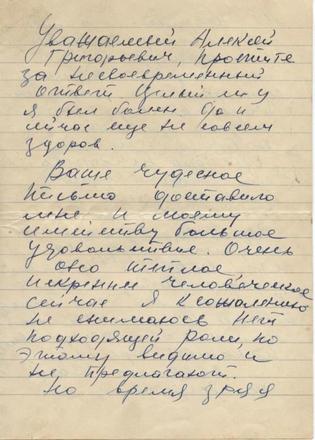 Уважаемый Алексей
Григорьевич, простите
за несвоевременный
ответ Целый м-ц
я был болен да и
сейчас еще не совсем
здоров.
Ваше чудесное
письмо доставило
мне и моему
семейству большое
удовольствие. Очень
оно теплое
искреннее человеческое
сейчас я к сожалению
не снимаюсь нет
подходящей роли, по
этому видимо и
не предлагают.
Но время зря я